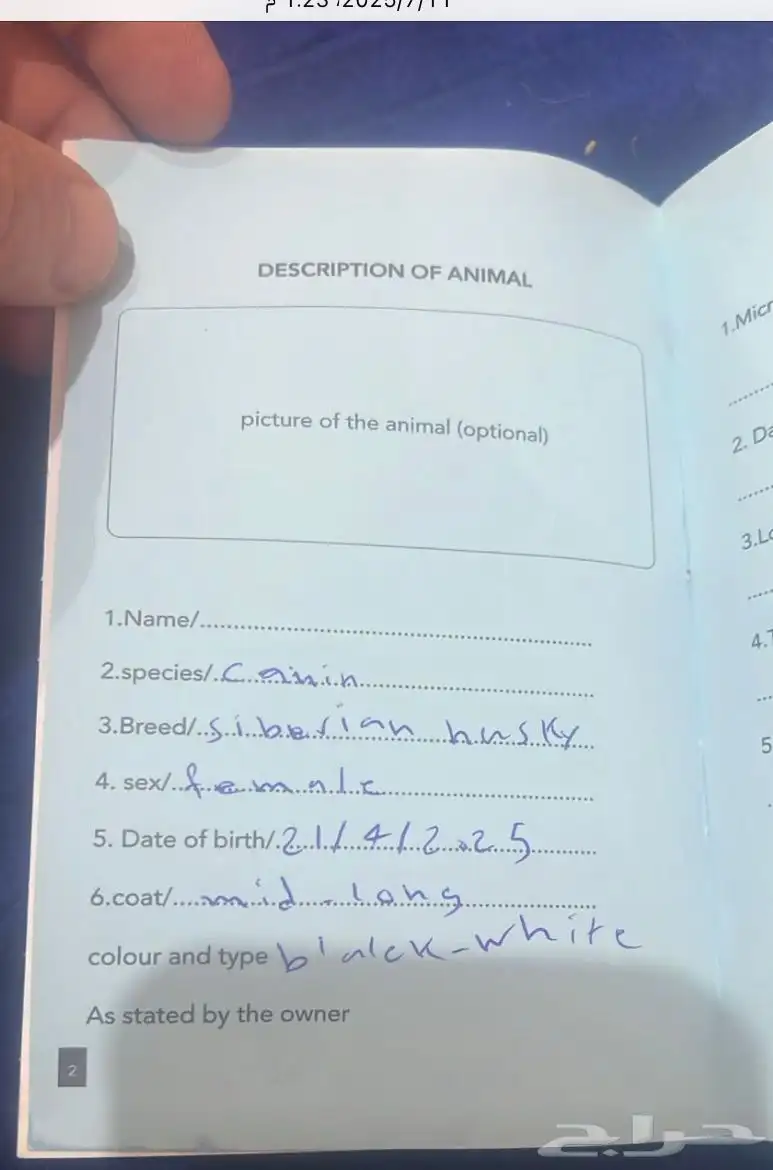 2025/7/11، 1:23 م
DESCRIPTION OF ANIMAL
picture of the animal (optional)
1.Name/
2.species/.Canin
3.Breed/..siberian husky
4. sex/..female
5. Date of birth/.21/4/2025
6.coat/....mid-long
colour and type black-white
As stated by the owner
2
1.Micr
2. Da
3.Lo
4.T
5
حراج